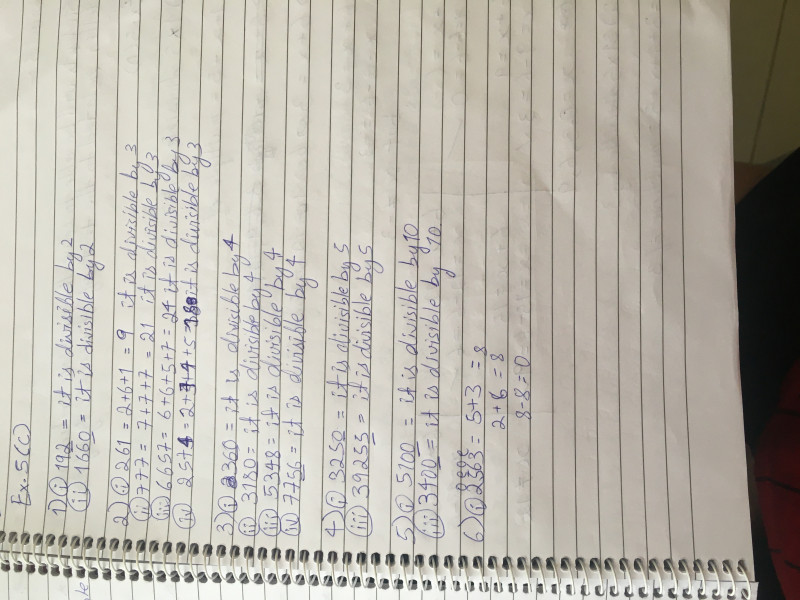 Ex. 5(C)
1) (i) 192 = it is divisible by 2
(ii) 1660 = it is divisible by 2
2) (i) 261 = 2+6+1 = 9 it is divisible by 3
(ii) 777 = 7+7+7 = 21 it is divisible by 3
(iii) 6657 = 6+6+5+7 = 24 it is divisible by 3
(iv) 2574 = 2+5+7+4 = it is divisible by 3
3) (i) 2360 = it is divisible by 4
(ii) 3180 = it is divisible by 4
(iii) 5348 = it is divisible by 4
(iv) 7756 = it is divisible by 4
4) (i) 3250 = it is divisible by 5
(iii) 39255 = it is divisible by 5
5) (i) 5100 = it is divisible by 10
(ii) 3400 = it is divisible by 10
6) (i) 2563 = 5+3 = 8
2+6 = 8
8-8=0